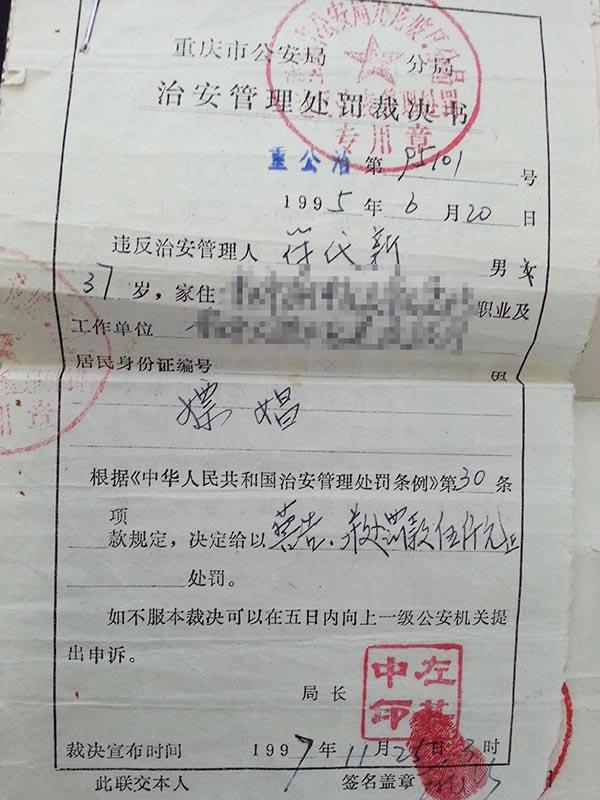 重庆市公安局 分局
治安管理处罚裁决书
专用章
重公治第95101号
1995年6月20日
违反治安管理人 符代新 男
37岁，家住 职业及
工作单位
居民身份证编号
嫖娼
根据《中华人民共和国治安管理处罚条例》第30条
项
款规定，决定给以警告、并处罚款伍仟元正
处罚。
如不服本裁决可以在五日内向上一级公安机关提
出申诉。
局长
裁决宣布时间 1997年11月25日3时
此联交本人 签名盖章